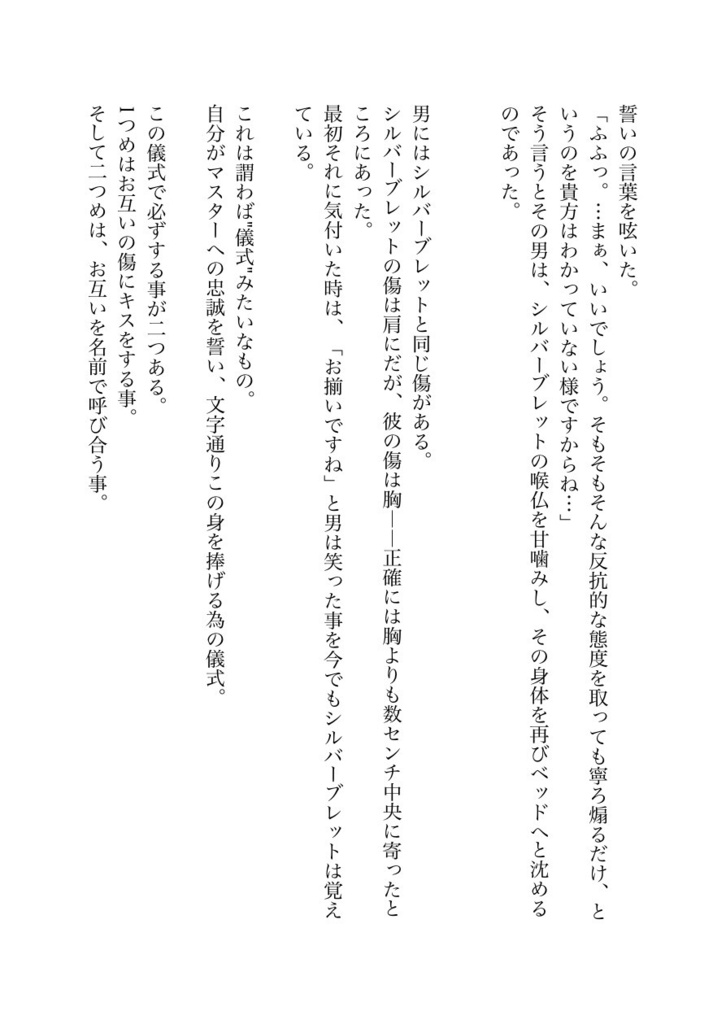 誓いの言葉を呟いた。
「ふふっ。…まぁ、いいでしょう。そもそもそんな反抗的な態度を取っても寧ろ煽るだけ、と
いうのを貴方はわかっていない様ですからね…」
そう言うとその男は、シルバーブレットの喉仏を甘噛みし、その身体を再びベッドへと沈める
のであった。
男にはシルバーブレットと同じ傷がある。
シルバーブレットの傷は肩にだが、彼の傷は胸――正確には胸よりも数センチ中央に寄ったと
ころにあった。
最初それに気付いた時は、「お揃いですね」と男は笑った事を今でもシルバーブレットは覚え
ている。
これは謂わば"儀式"みたいなもの。
自分がマスターへの忠誠を誓い、文字通りこの身を捧げる為の儀式。
この儀式で必ずする事が二つある。
1つめはお互いの傷にキスをする事。
そして二つめは、お互いを名前で呼び合う事。